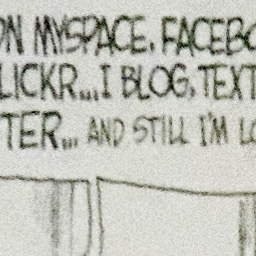 ON MYSPACE, FACEBO
LICKR... I BLOG, TEXT
TER... AND STILL I'M LO